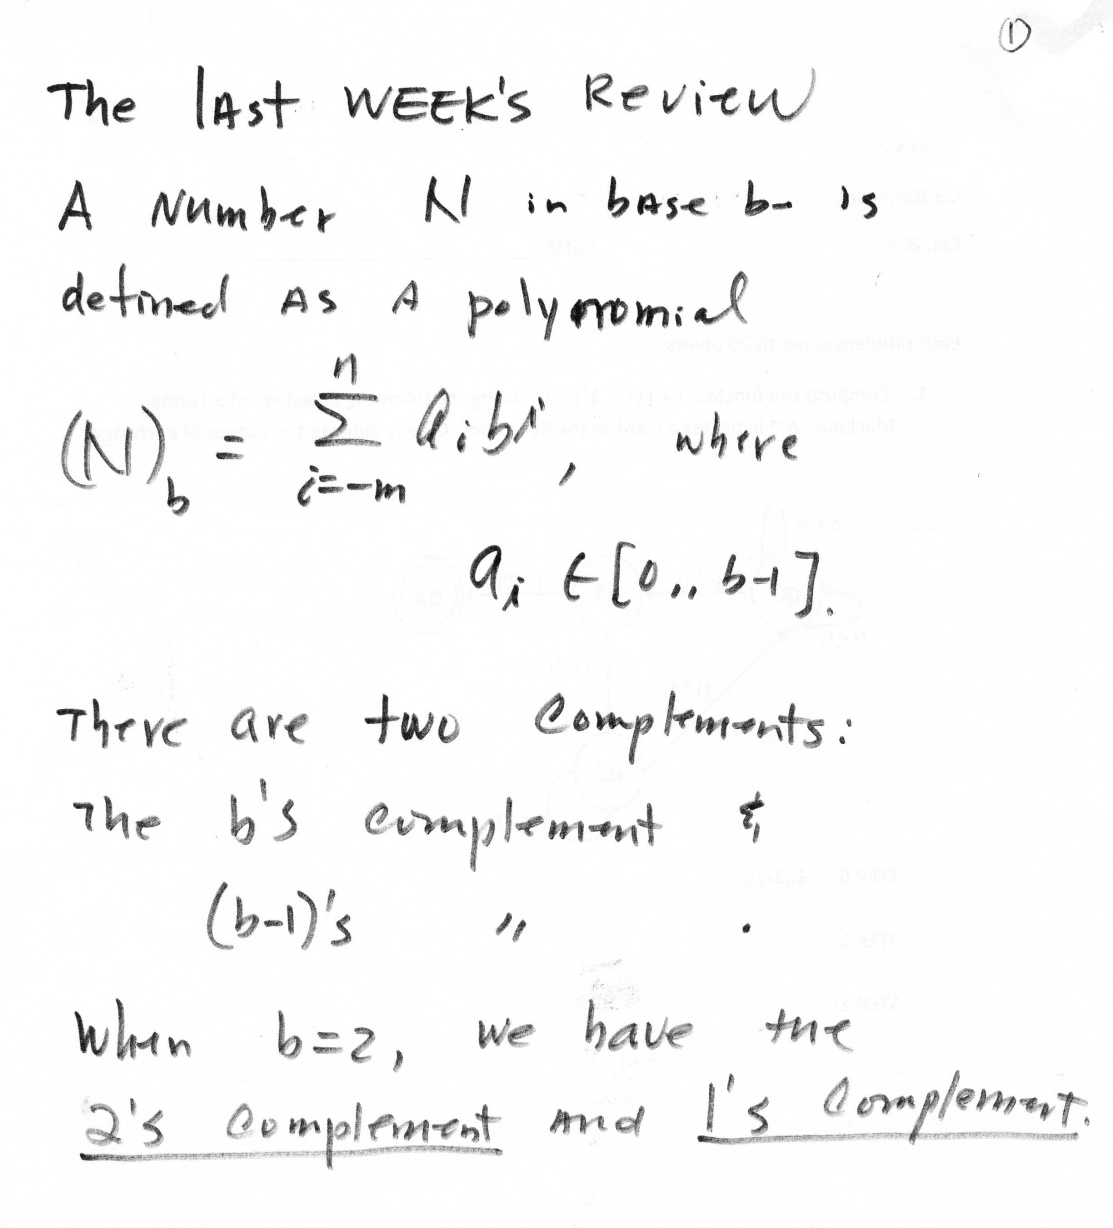 ①
The last WEEK's Review
A Number N in base b- is
defined As A polynomial
(N)_b = \sum_{i=-m}^{n} a_i b^i, where
a_i ∈ [0..b-1].
There are two Complements:
The b's complement &
(b-1)'s " .
When b=2, we have the
2's Complement And 1's Complement.